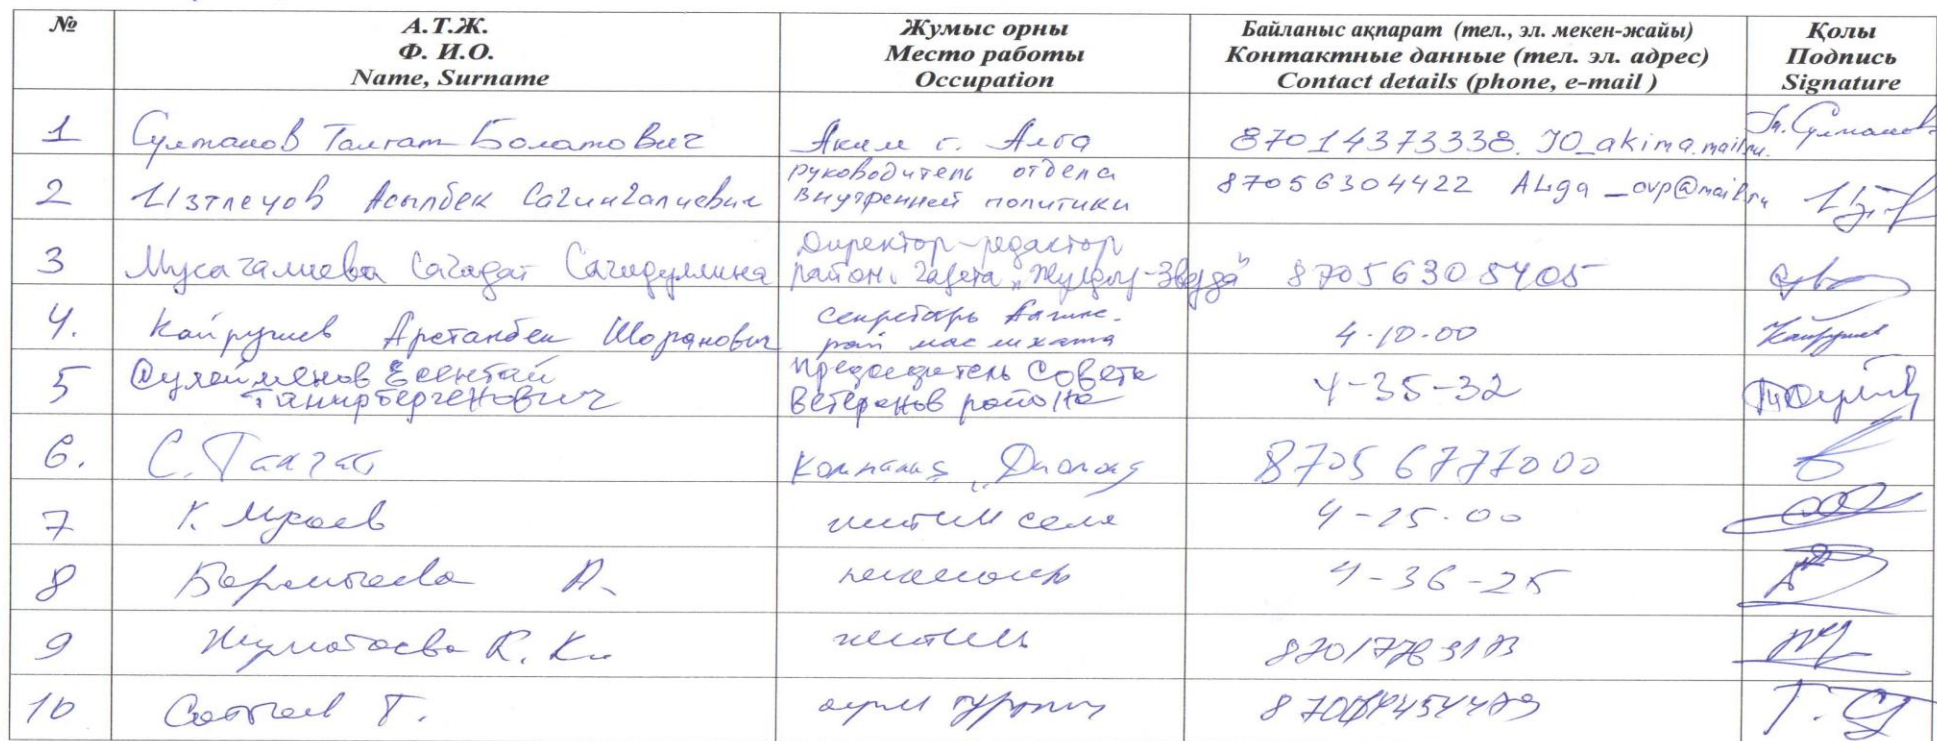 №
А.Т.Ж.
Ф. И.О.
Name, Surname
Жумыс орны
Место работы
Occupation
Байланыс ақпарат (тел., эл. мекен-жайы)
Контактные данные (тел. эл. адрес)
Contact details (phone, e-mail )
Қолы
Подпись
Signature
1 Султанов Талгат Болатович Аким г. Алга 87014373338. JO_akima.mail.ru.
2 Изтлеуов Асылбек Сагингалиевич
руководитель отдела
внутренней политики
87056304422 ALga_ovp@mail.ru
3 Мусагалиева Сагадат Сагидуллина
Директор-редактор
район. газета „Жулдыз-Звезда"
87056305405
4. Кайрушев Арстанбек Шоранович
секретарь
рай маслихата
4-10-00
5 Сулейменов Есентай
Танирбергенович
председатель Совета
Ветеранов района
4-35-32
6. С. Талгат Компания 87056777000
7 К. Мусаев села 4-25-00
8 А. 4-36-25
9 К. житель
10 Т.